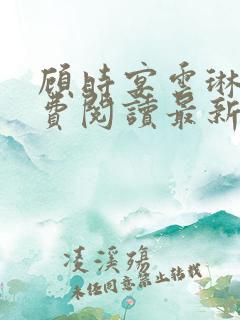 顾时宴雪琳
費閱讀最新
凌溪殤
未经同意禁止转载